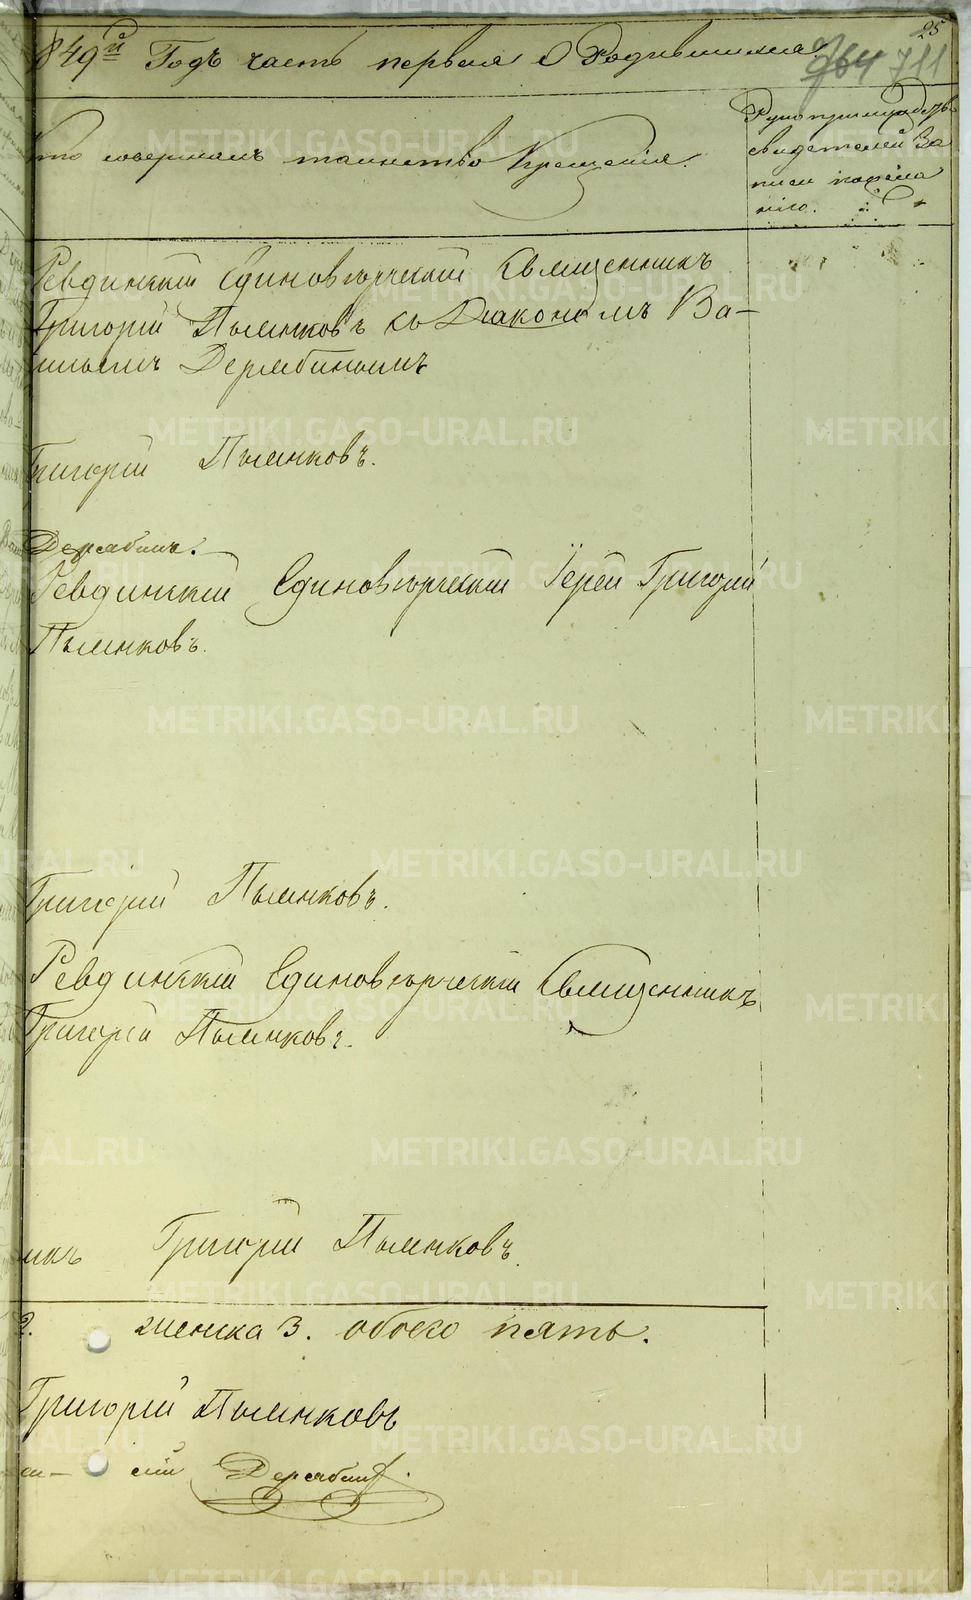 25
849й Годъ часть первая О Родившихся
764 711
кто совершалъ таинство Крещенія.
Рукоприкладство
свидетелей За
писи по жела
нію.
Ревдинскій Единоверческій Священникъ
Григорій Пьянковъ съ Діакономъ Ва-
сильемъ Дерябинымъ
Григорій Пьянковъ.
Дерябинъ.
Ревдинскій Единоверческій Іерей Григорій
Пьянковъ.
Григорій Пьянковъ.
Ревдинскій Единоверческій Священникъ
Григорій Пьянковъ.
никъ Григорій Пьянковъ.
2. женска 3. обоего пять.
Григорій Пьянковъ
сій Дерябинъ.
METRIKI.GASO-URAL.RU